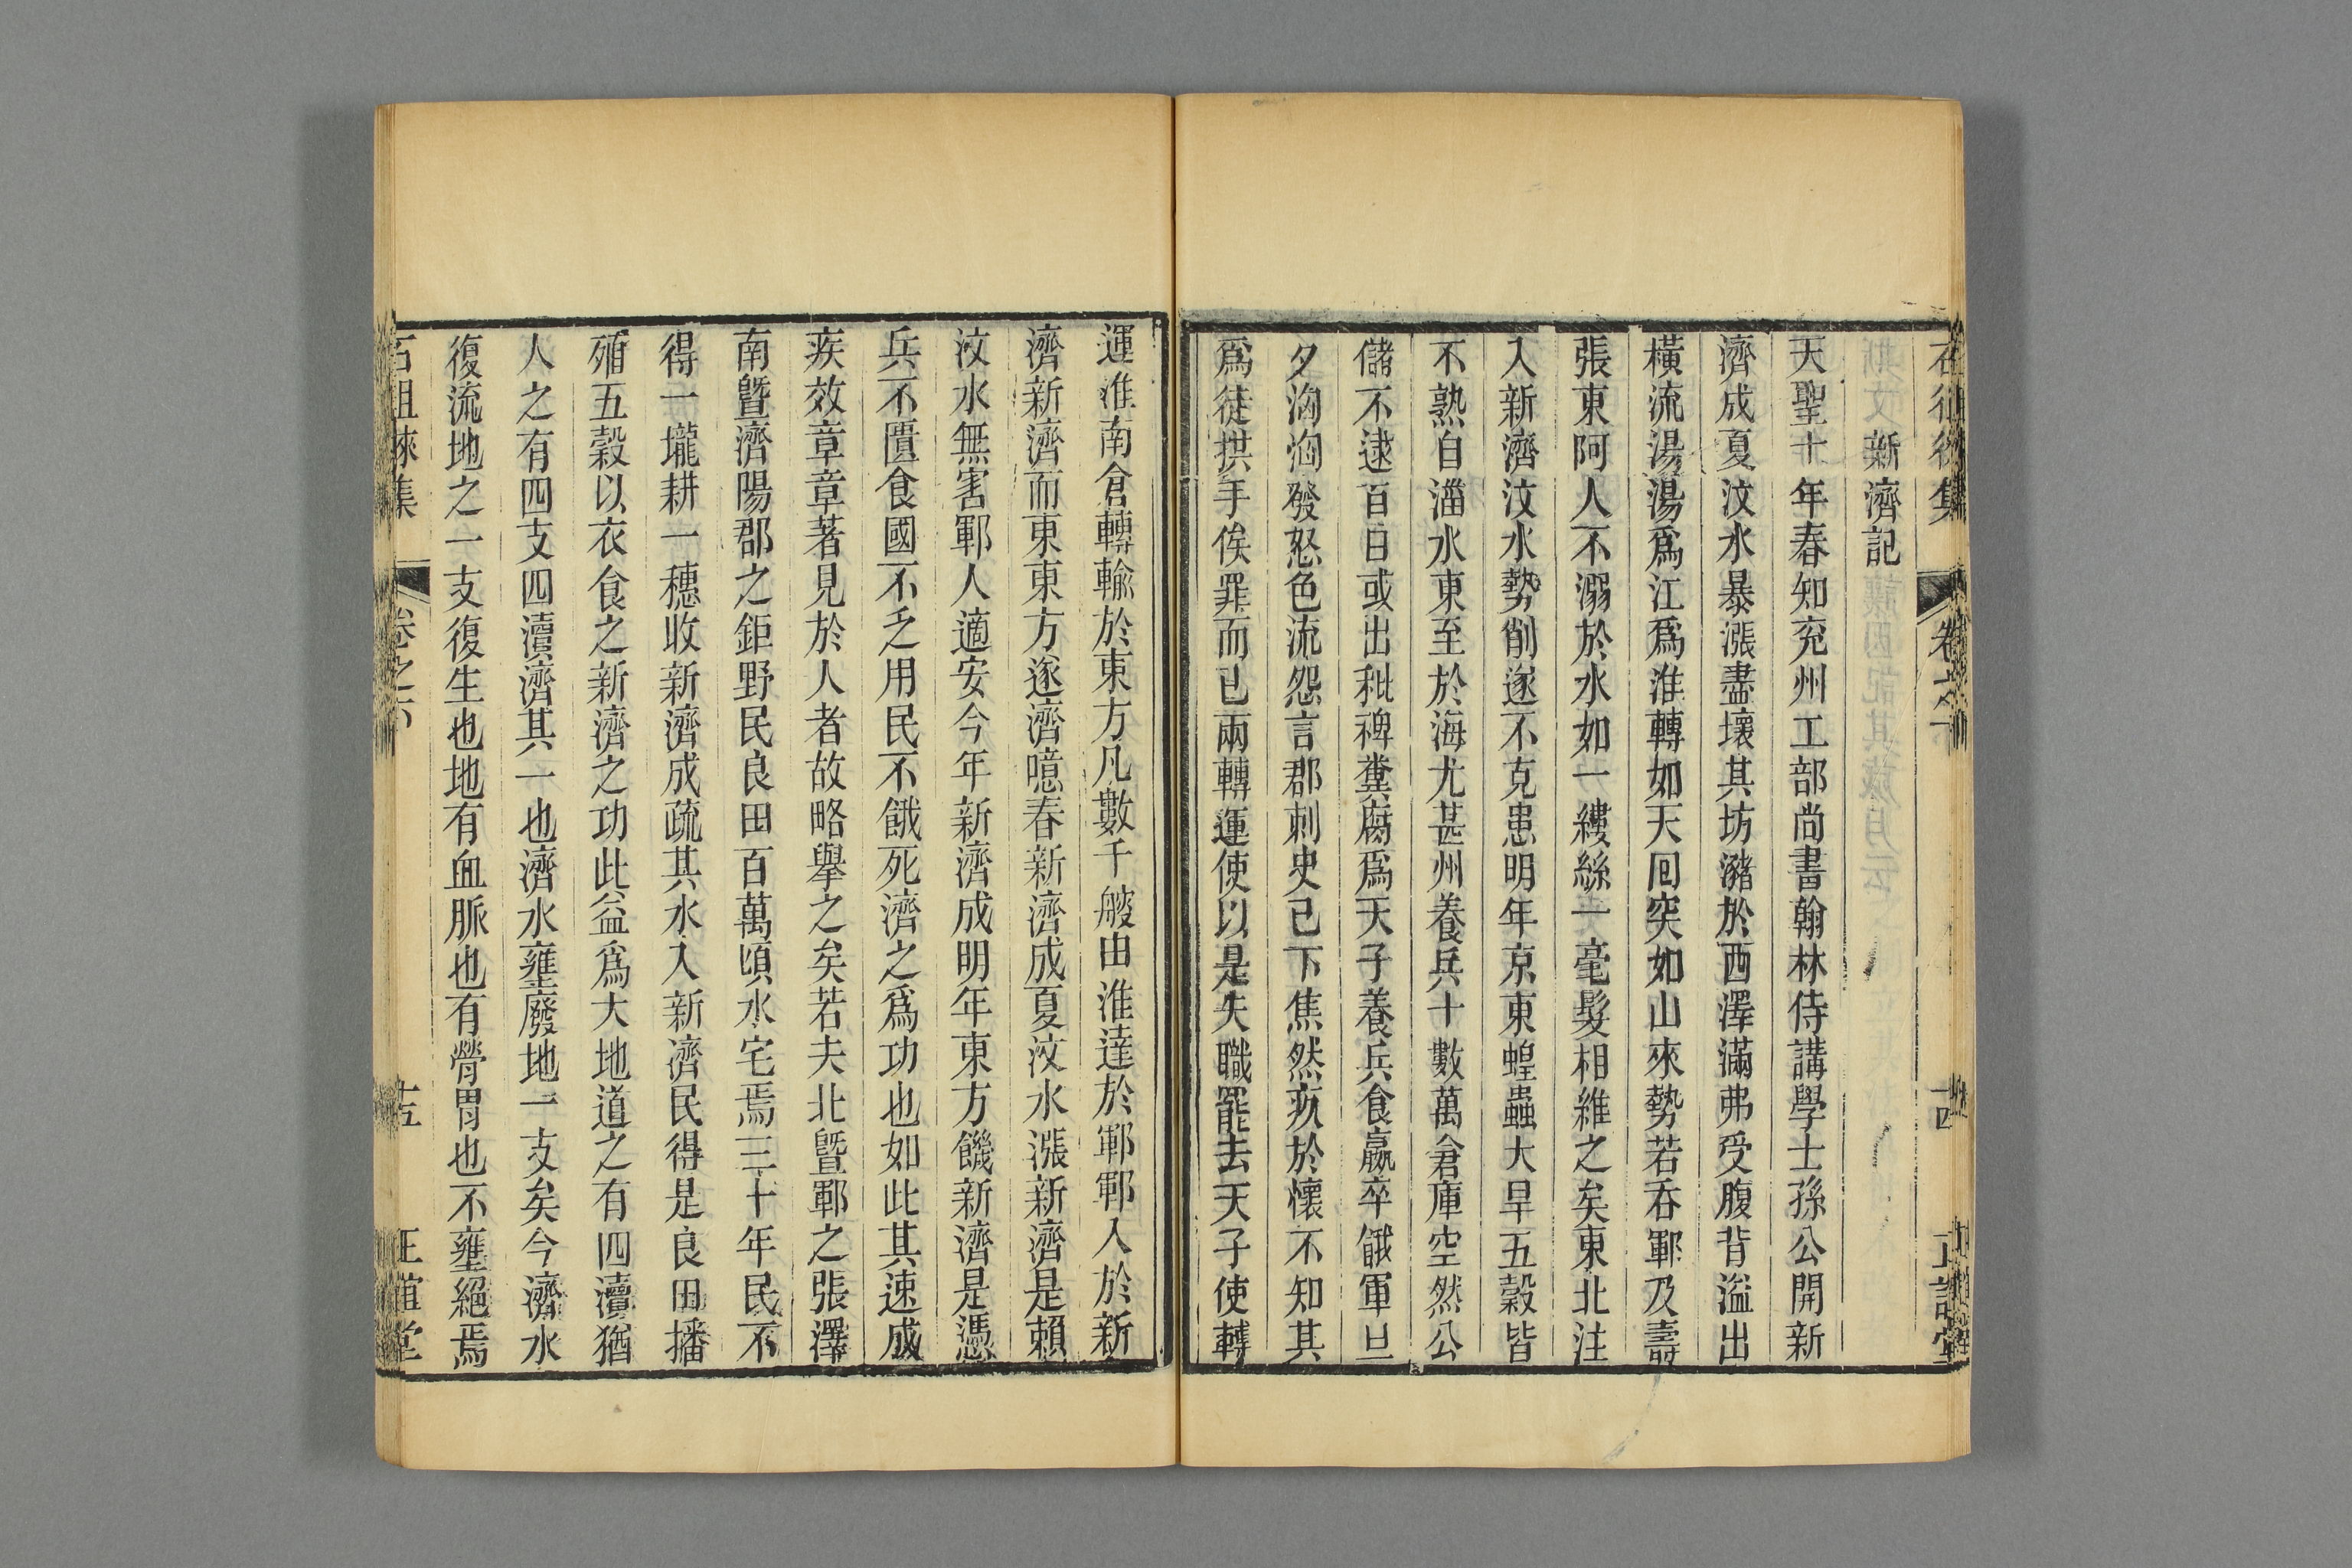 新濟記
天聖十年春知兖州工部尚書翰林侍講學士孫公開新
濟成夏汶水暴漲盡壞其坊瀦於西澤滿弗受腹背溢出
橫流湯湯爲江爲淮轉如天回突如山來勢若吞鄆及壽
張東阿人不溺於水如一縷絲一毫髮相維之矣東北注
入新濟汶水勢削遂不克患明年京東蝗蟲大旱五穀皆
不熟自淄水東至於海尤甚州養兵十數萬倉庫空然公
儲不逮百日或出秕稗糞腐爲天子養兵食羸卒餓軍旦
夕洶洶發怒色流怨言郡刺史已下焦然疚於懷不知其
爲徒拱手俟罪而已兩轉運使以是失職罷去天子使轉
運淮南倉轉輸於東方凡數千艘由淮達於鄆鄆入於新
濟新濟而東東方遂濟噫春新濟成夏汶水漲新濟是賴
汶水無害鄆人適安今年新濟成明年東方饑新濟是憑
兵不匱食國不乏用民不餓死濟之爲功也如此其速成
疾效章章著見於人者故略舉之矣若夫北暨鄆之張澤
南暨濟陽郡之鉅野民良田百萬頃水宅焉三十年民不
得一壠耕一穗收新濟成疏其水入新濟民得是良田播
殖五穀以衣食之新濟之功此益爲大地道之有四瀆猶
人之有四支四瀆濟其一也濟水壅廢地一支矣今濟水
復流地之一支復生也地有血脈也有膋胃也不壅絕焉
石徂徠集 卷之六 十五 正誼堂